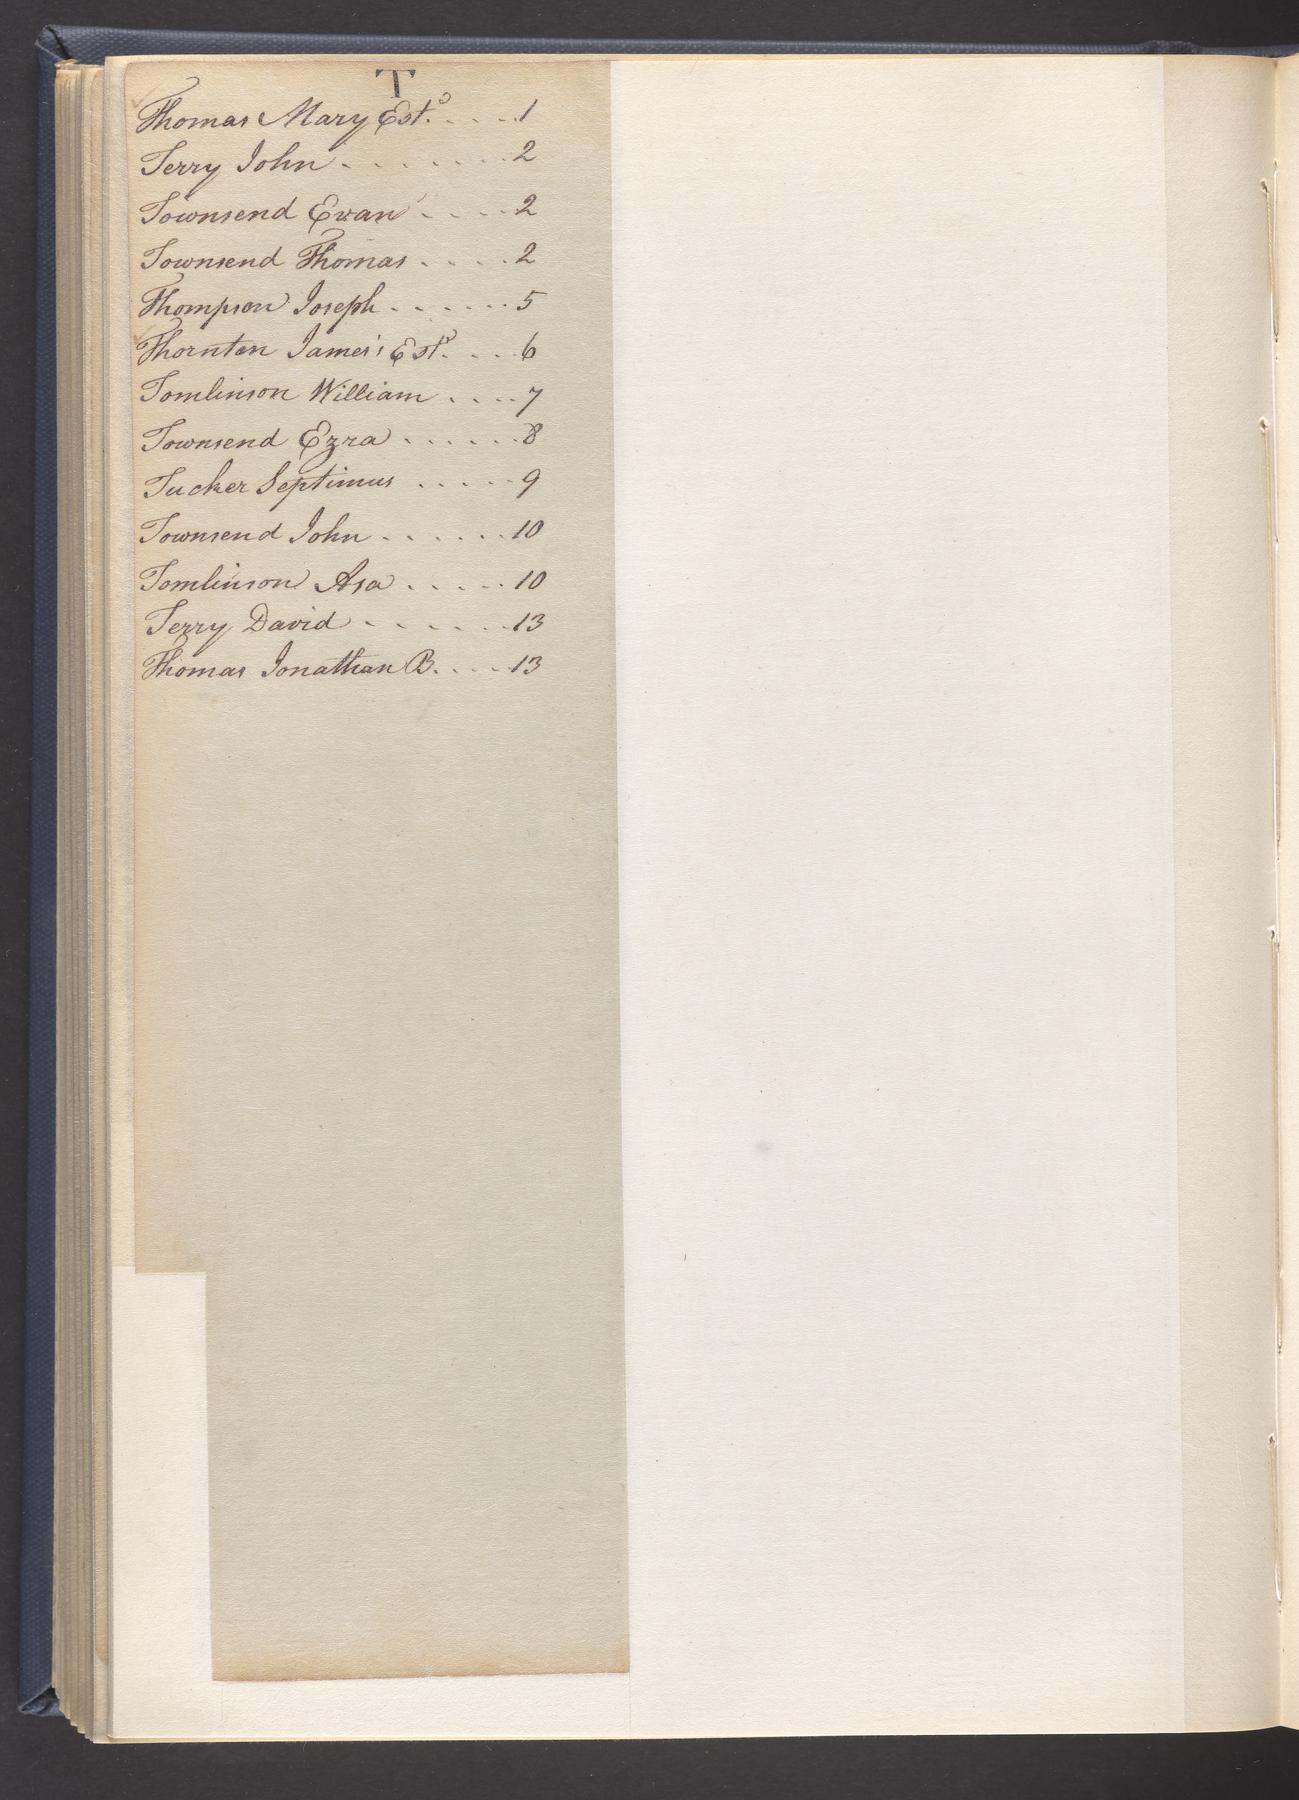 T
Thomas Mary Est.o . . . . 1
Terry John . . . . . . . 2
Townsend Evan . . . . 2
Townsend Thomas . . . . 2
Thompson Joseph . . . . . . 5
Thornton James's Esto. . . . 6
Tomlinson William . . . . 7
Townsend Ezra . . . . . . 8
Tucker Septimus . . . . . 9
Townsend John . . . . . . 10
Tomlinson Asa . . . . . 10
Terry David . . . . . . 13
Thomas Jonathan B. . . . 13